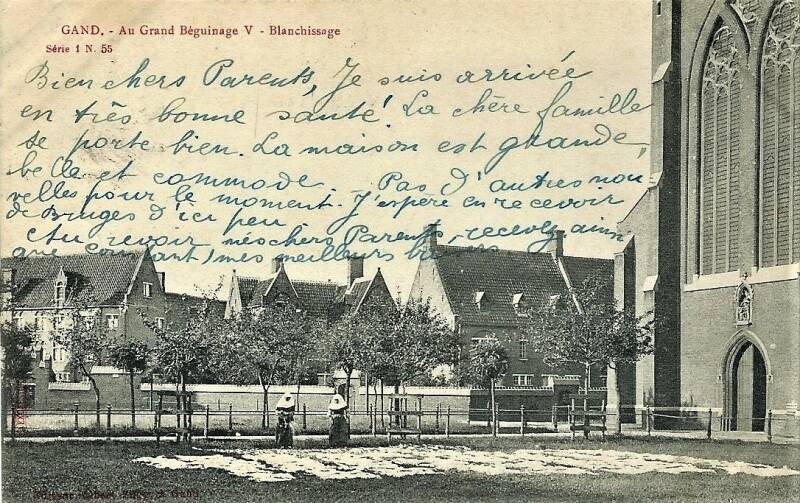 GAND. - Au Grand Béguinage V - Blanchissage
Série 1 N. 55
Bien chers Parents, Je suis arrivée
en très bonne santé! La chère famille
se porte bien. La maison est grande,
belle et commode. Pas d'autres nou
velles pour le moment. J'espère en recevoir
de Bruges d'ici peu
Au revoir, mes chers Parents, recevez ainsi
que mes meilleurs
Albert Sugg, à Gand